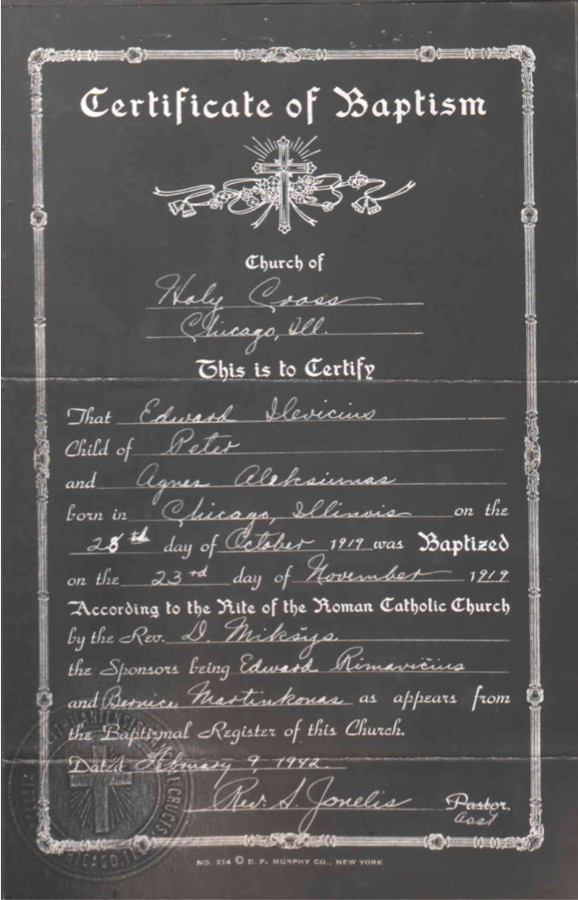 Certificate of Baptism
Church of
Holy Cross
Chicago, Ill.
This is to Certify
That Edward Ilevicius
Child of Peter
and Agnes Aleksiunas
born in Chicago, Illinois on the
28th day of October 1919 was Baptized
on the 23rd day of November 1919
According to the Rite of the Roman Catholic Church
by the Rev. D. Mikšys
the Sponsors being Edward Rimavičius
and Bernice Martinkonas as appears from
the Baptismal Register of this Church.
Dated February 9, 1942.
Rev. S. Jonelis Pastor.
asst
CRUCIS
CHICAGO, ILL
NO. 214 © D. P. MURPHY CO., NEW YORK